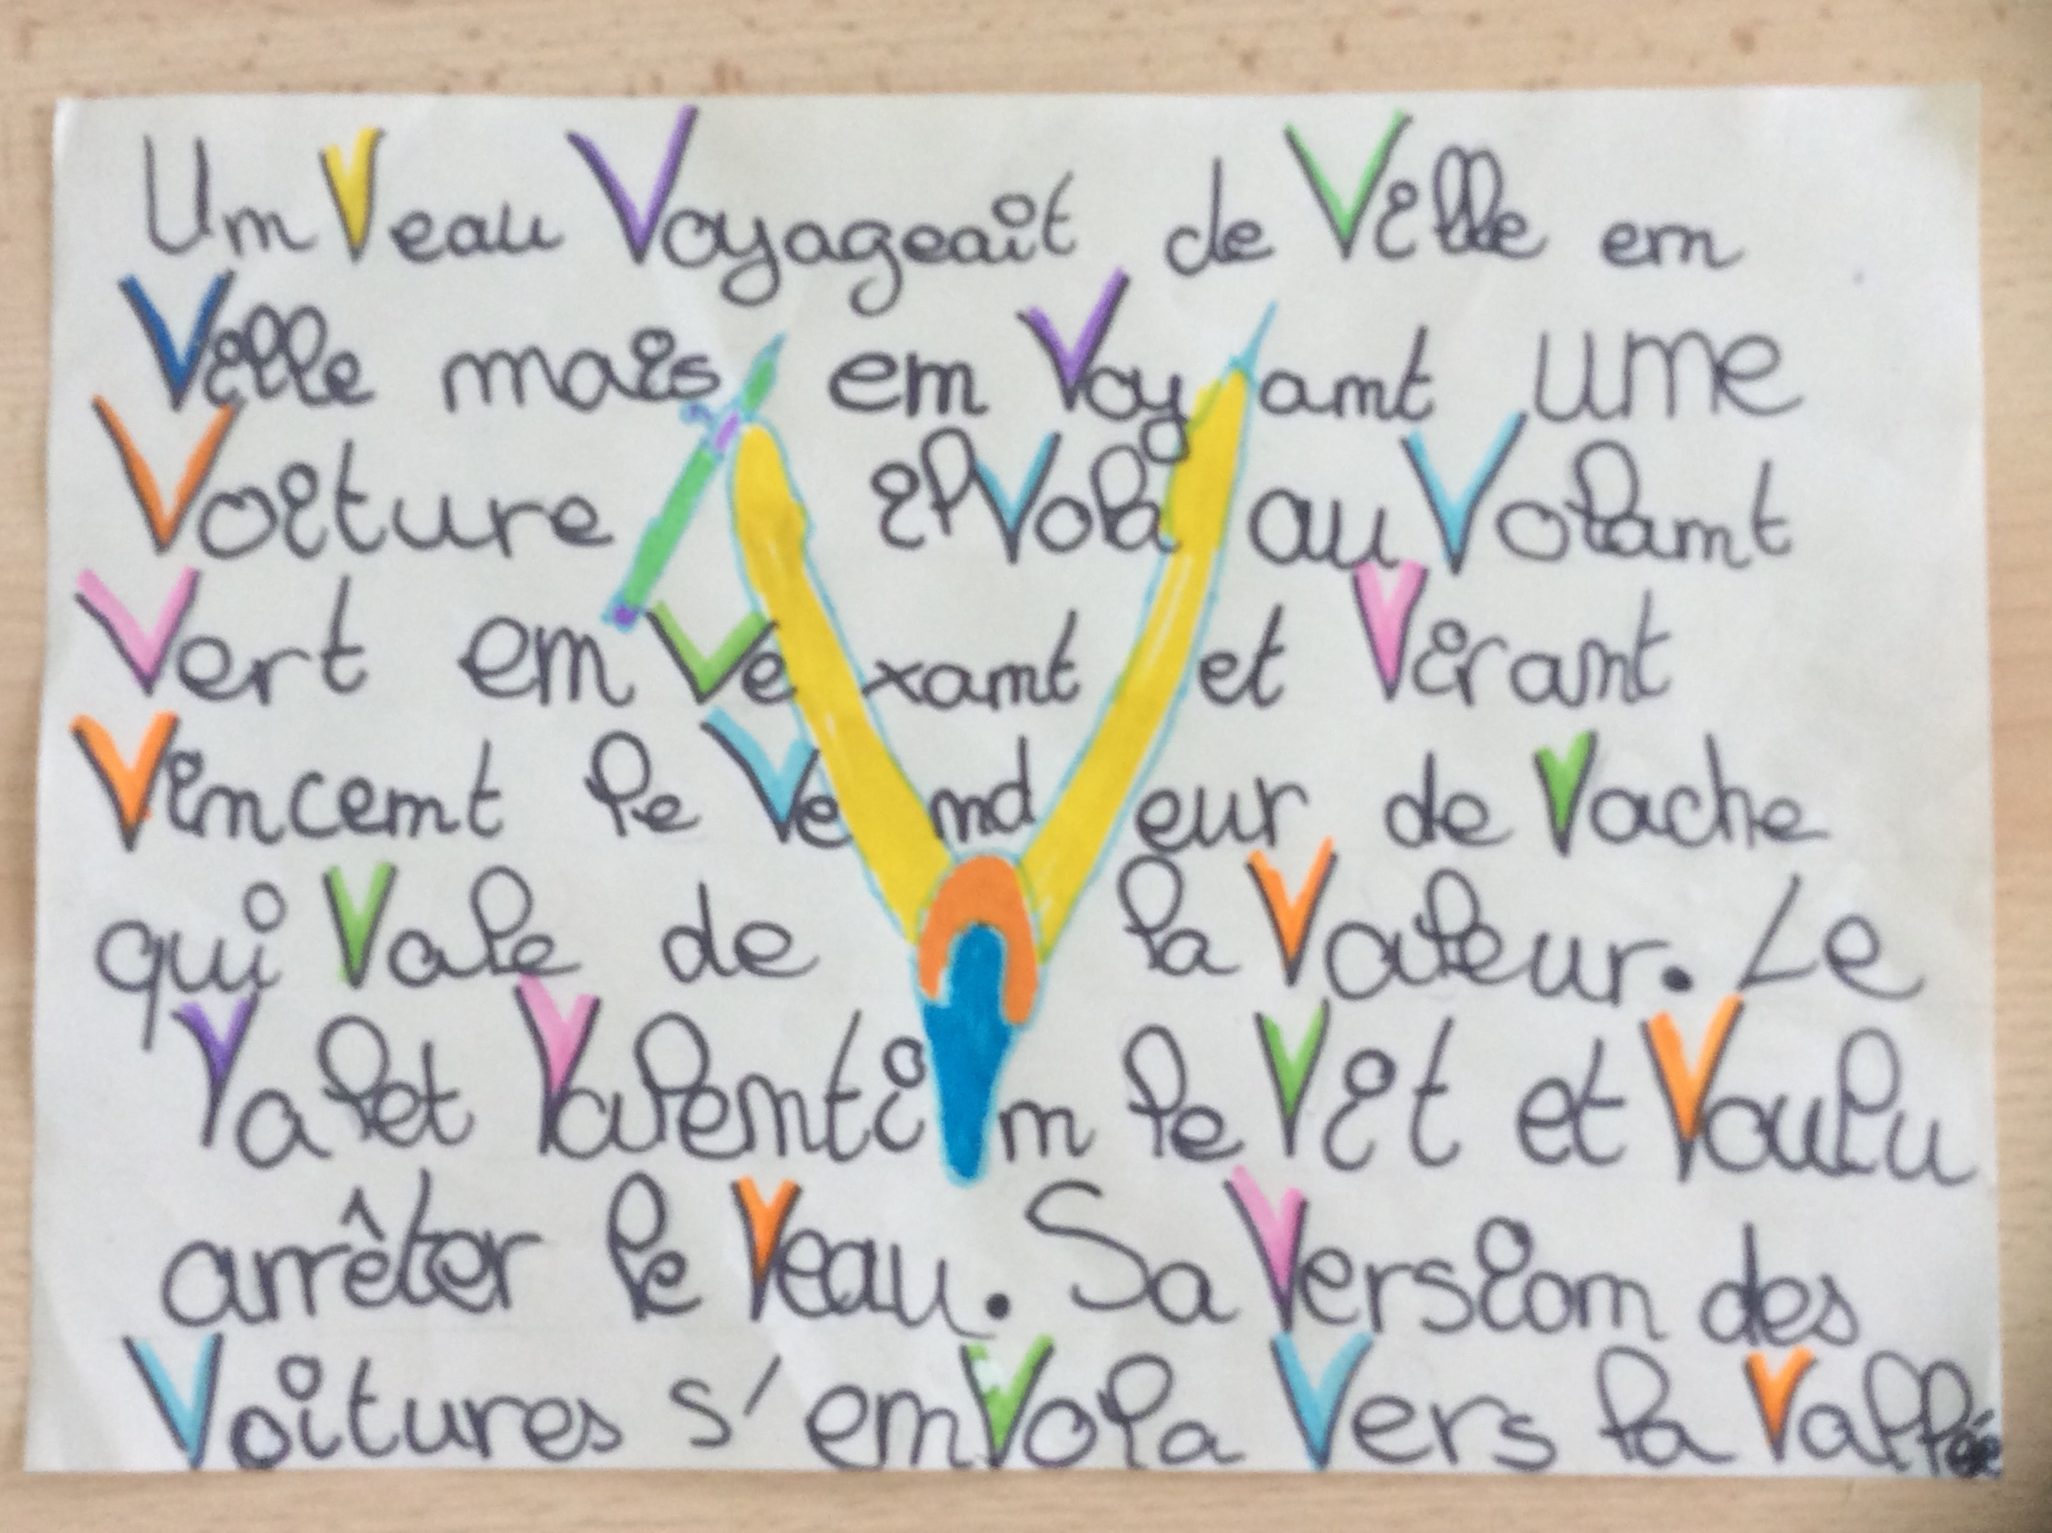 Un Veau Voyageait de Ville en
Ville mais en Voyant une
Voiture il Vola au Volant
Vert en Vexant et Virant
Vincent le Vendeur de Vache
qui Vale de la Valeur. Le
Valet Valentin le Vit et Voulu
arrêter le Veau. Sa Version des
Voitures s'enVola Vers la Vallée